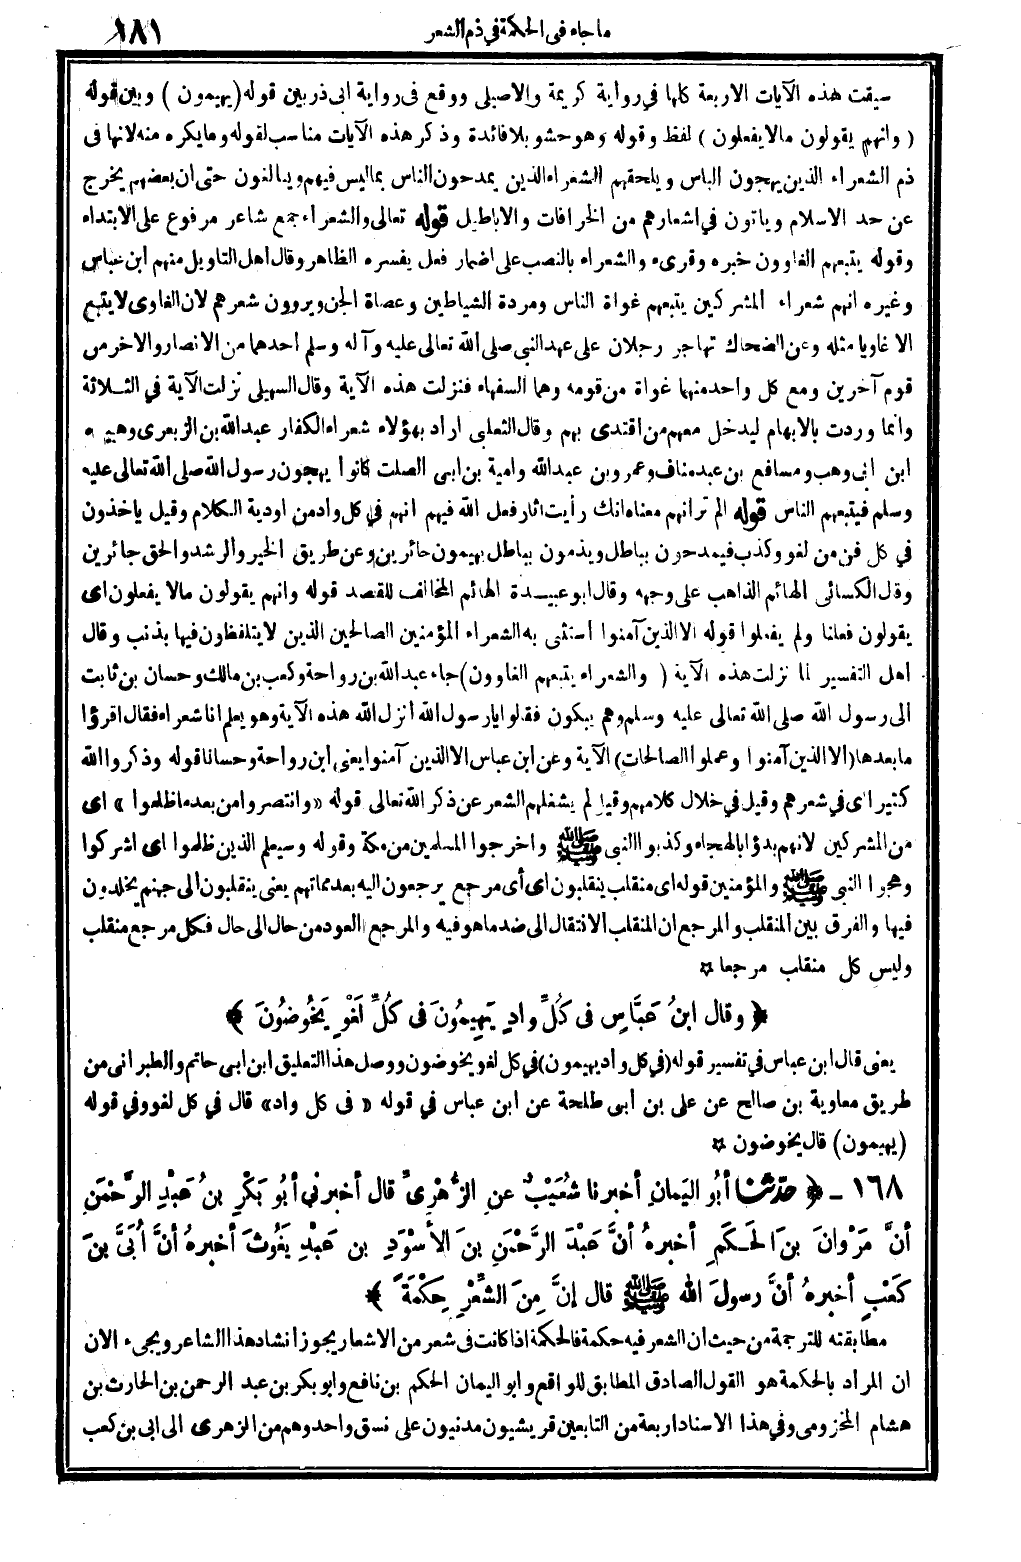 ما جاء في الحكمة في ذم الشعر
١٨١
سيقت هذه الآيات الاربعة كلها في رواية كريمة والاصيلى ووقع فى رواية ابى ذر بين قوله (يهيمون) وبين قوله
(وانهم يقولون مالا يفعلون) لفظ وقوله وهو حشو بلا فائدة وذكر هذه الآيات مناسب لقوله وما يكره منه لانها فى
ذم الشعراء الذين يهجون الناس ويلحقهم الشعراء الذين يمدحون الناس بما ليس فيهم ويبالغون حتى ان بعضهم يخرج
عن حد الاسلام وياتون في اشعارهم من الخرافات والاباطيل قوله تعالى والشعراء جمع شاعر مرفوع على الابتداء
وقوله يتبعهم الغاوون خبره وقرىء والشعراء بالنصب على اضمار فعل يفسره الظاهر وقال اهل التاويل منهم ابن عباس
وغيره انهم شعراء المشركين يتبعهم غواة الناس ومردة الشياطين وعصاة الجن ويروون شعرهم لان الغاوى لا يتبع
الا غاويا مثله وعن الضحاك تهاجر رجلان على عهد النبي صلى الله تعالى عليه وآله وسلم احدهما من الانصار والاخر من
قوم آخرين ومع كل واحد منهما غواة من قومه وهما السفهاء فنزلت هذه الآية وقال السهيلى نزلت الآية في الثلاثة
وانما وردت بالابهام ليدخل معهم من اقتدى بهم وقال الثعلبى اراد بهؤلاء شعراء الكفار عبدالله بن الزبعرى وهبيرة
ابن ابى وهب ومسافع بن عبد مناف وعمرو بن عبدالله وامية بن ابى الصلت كانوا يهجون رسول الله صلى الله تعالى عليه
وسلم فيتبعهم الناس قوله الم تر انهم معناه انك رأيت اثار فعل الله فيهم انهم في كل واد من اودية الكلام وقيل ياخذون
في كل فن من لغو وكذب فيمدحون بباطل ويذمون بباطل يهيمون حائرين وعن طريق الخير والرشد والحق جائرين
وقال الكسائى الهائم الذاهب على وجهه وقال ابو عبيدة الهائم المخالف للقصد قوله وانهم يقولون مالا يفعلون اى
يقولون فعلنا ولم يفعلوا قوله الا الذين آمنوا استثنى به الشعراء المؤمنين الصالحين الذين لا يتلفظون فيها بذنب وقال
اهل التفسير لما نزلت هذه الآية (والشعراء يتبعهم الغاوون) جاء عبدالله بن رواحة وكعب بن مالك وحسان بن ثابت
الى رسول الله صلى الله تعالى عليه وسلم وهم يبكون فقالوا يا رسول الله أنزل الله هذه الآية وهو يعلم انا شعراء فقال اقرؤا
ما بعدها (الا الذين آمنوا وعملوا الصالحات) الآية وعن ابن عباس الا الذين آمنوا يعنى ابن رواحة وحسانا قوله وذكروا الله
كثيرا اى في شعرهم وقيل في خلال كلامهم وقيل لم يشغلهم الشعر عن ذكر الله تعالى قوله «وانتصروا من بعد ما ظلموا» اى
من المشركين لانهم بدؤا بالهجاء وكذبوا النبي ﷺ واخرجوا المسلمين من مكة وقوله وسيعلم الذين ظلموا اى اشركوا
وهجوا النبي ﷺ والمؤمنين قوله اى منقلب ينقلبون اى أى مرجع يرجعون اليه بعد مماتهم يعنى ينقلبون الى جهنم يخلدون
فيها والفرق بين المنقلب والمرجع ان المنقلب الانتقال الى ضد ما هو فيه والمرجع العود من حال الى حال فكل مرجع منقلب
وليس كل منقلب مرجعا ✩
﴿ وقال ابنُ عَبَّاسٍ فى كُلِّ وادٍ يَهِيمُونَ فى كُلِّ لَغْوٍ يَخُوضُونَ ﴾
يعنى قال ابن عباس في تفسير قوله (في كل واد يهيمون) في كل لغو يخوضون ووصل هذا التعليق ابن ابى حاتم والطبرانى من
طريق معاوية بن صالح عن على بن أبى طلحة عن ابن عباس في قوله «فى كل واد» قال في كل لغو وفي قوله
(يهيمون) قال يخوضون ✩
١٦٨ - ﴿ حدّثنا أبُو اليَمانِ أخبرنا شُعَيْبٌ عنِ الزُّهْرِىِّ قال أخبرني أبُو بَكْرِ بنُ عَبْدِ الرَّحْمنِ
أنَّ مَرْوَانَ بنَ الحَكَمِ أخبرهُ أنَّ عَبْدَ الرَّحْمنِ بنَ الأَسْوَدِ بن عَبْدِ يَغُوثَ أخبرهُ أنَّ أُبَىَّ بنَ
كَعْبٍ أخبرهُ أنَّ رسولَ الله ﷺ قال إنَّ مِنَ الشِّعْرِ حِكْمَةً ﴾
مطابقته للترجمة من حيث ان الشعر فيه حكمة فالحكمة اذا كانت فى شعر من الاشعار يجوز انشاد هذا الشاعر ويجىء الان
ان المراد بالحكمة هو القول الصادق المطابق للواقع وابو اليمان الحكم بن نافع وابو بكر بن عبد الرحمن بن الحارث بن
هشام المخزومى وفي هذا الاسناد اربعة من التابعين قريشيون مدنيون على نسق واحد وهم من الزهرى الى ابى بن كعب